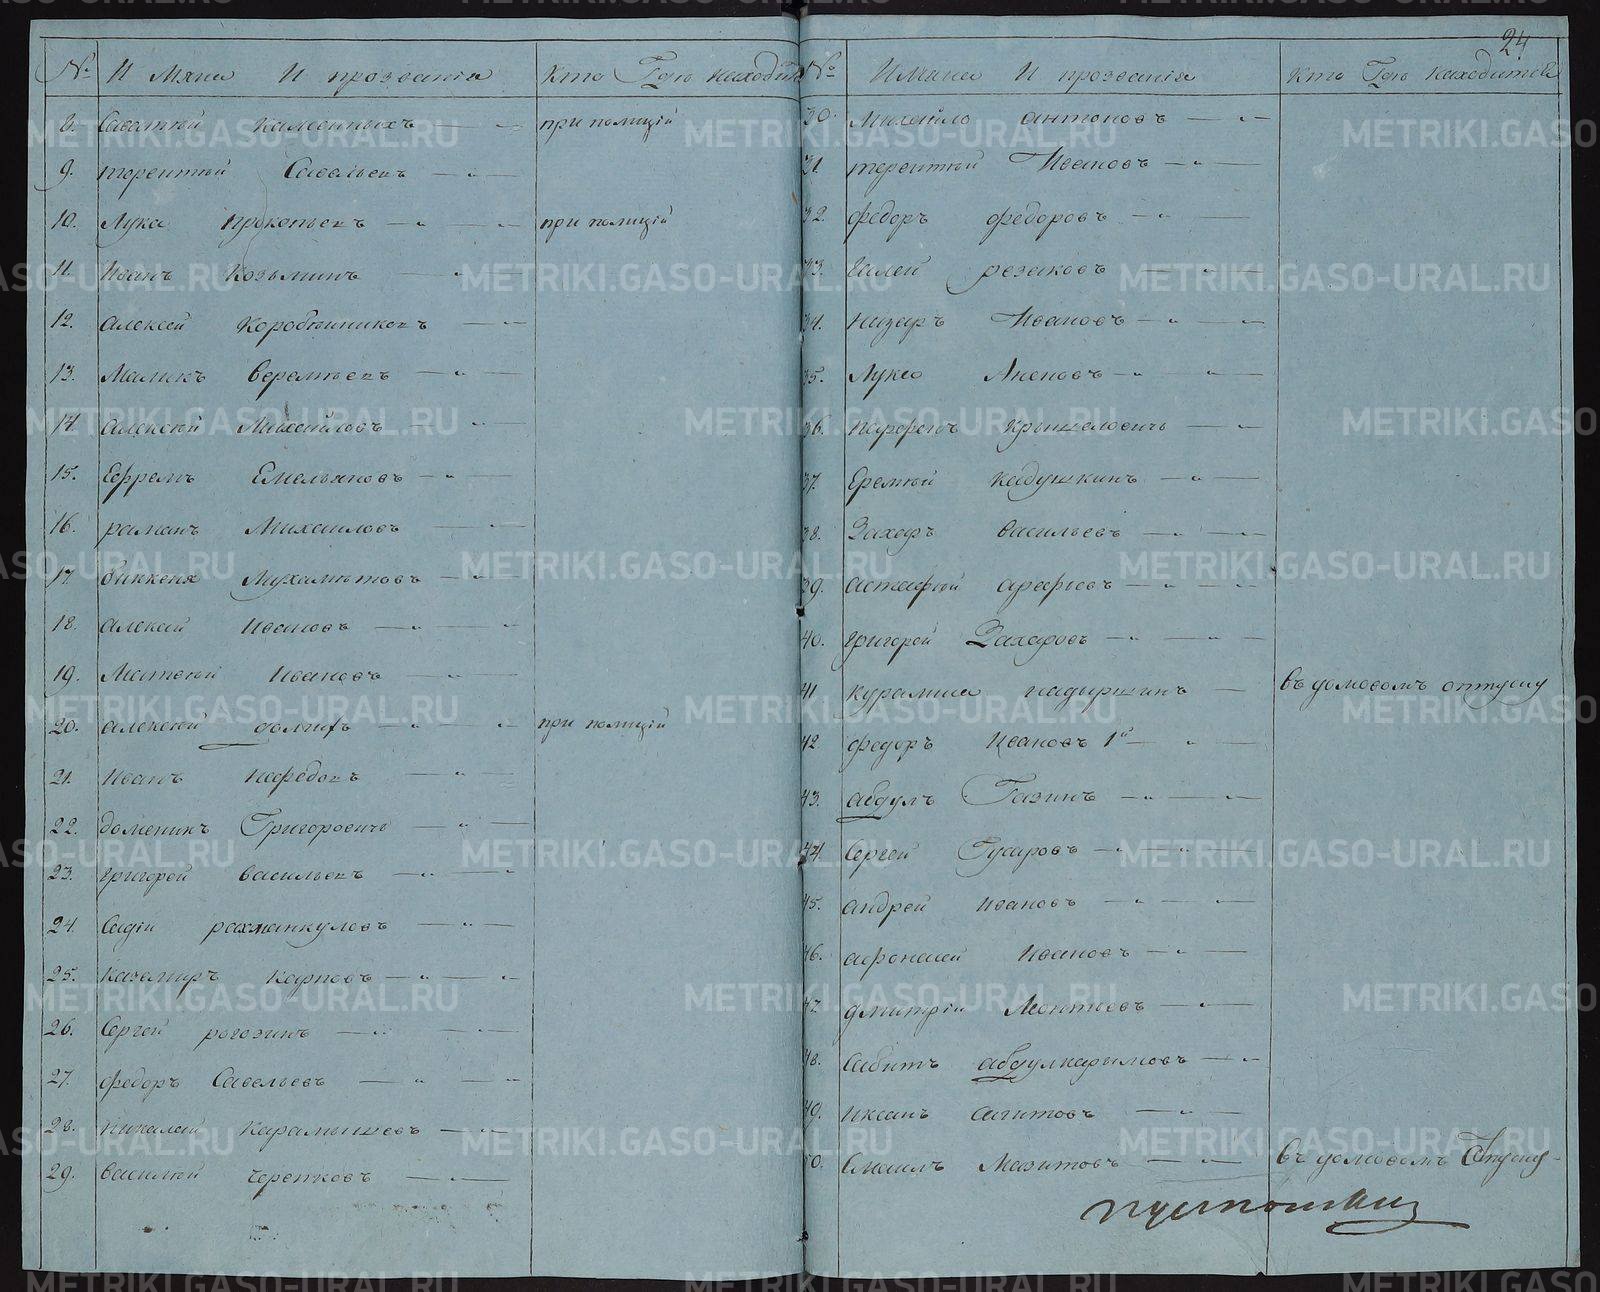 № Имяна И прозвания Кто Где находится
8. Саватий Каменныхъ при полицiи
9. терентий Савѣльевъ
10. Лука Прокопьевъ при полицiй
11. Иванъ Козьминъ
12. алексей Коробейниковъ
13. Маликъ Веремьевъ
14. алексей Михайловъ
15. Ефремъ Емельяновъ
16. раманъ Михаиловъ
17. Мухаметовъ
18. алексей Ивановъ
19. Матвей Ивановъ
20. алексей при полицiй
21. Иванъ Нефедовъ
22. доменикъ Григоровичь
23. григорей васильевъ
24. Садiи рахманкуловъ
25. каземиръ Карповъ
26. Сергей рогозинъ
27. федоръ Савельевъ
28. николай Карамышевъ
29. василий Черепковъ
24
№ Имяна И прозвания Кто Где находится
30. Михайло антоновъ
31. терентий Ивановъ
32. федоръ федоровъ
33. резяковъ
34. назаръ Ивановъ
35. Лука
36. парфенъ
37. Еремей кадушкинъ
38. Захаръ васильевъ
39. астафий арефьевъ
40. григорей Захаровъ
41 курамша надыршинъ въ домовомъ отпуску
42 федоръ Ивановъ 1й
43. абдулъ Газинъ
44. Сергей Гусаровъ
45. андрей Ивановъ
46. афонасей Ивановъ
47. дмитрiи Леонтьевъ
48. Сабитъ абдулкаримовъ
49. иксанъ сагитовъ
50. Смаилъ Мазитовъ въ домовомъ Отпуску
METRIKI.GASO-URAL.RU